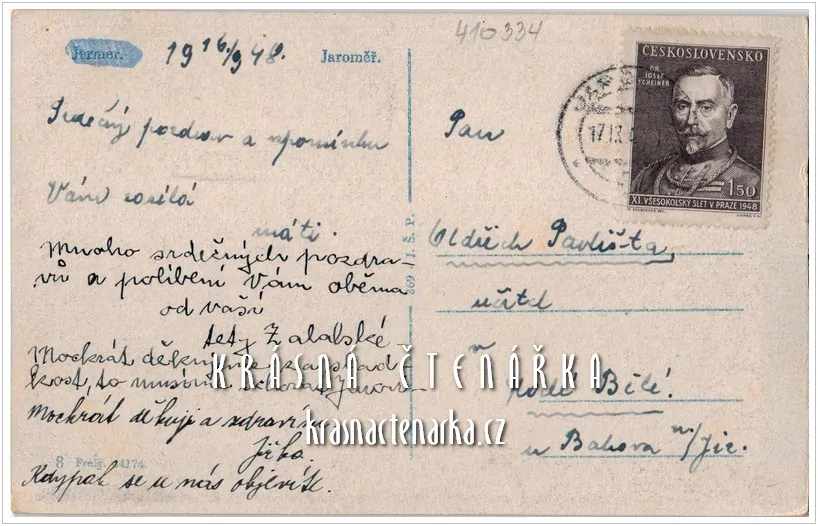 410334
Jermer.
19 16./9 48.
Jaroměř.
Srdečný pozdrav a vzpomínku
Vám zasílá
máti.
Mnoho srdečných pozdra-
vů a políbení Vám oběma
od vaší
tety Zalabské
Mockrát děkuji za slad-
kost, to musím
Mockrát děkuji a zdraví
Jirka.
Kdypak se u nás objevíte.
8 Freig. 4174
369 J. Š. P.
ČESKOSLOVENSKO
DR.
JOSEF
SCHEINER
1.50
XI. VŠESOKOLSKÝ SLET V PRAZE 1948
17.IX.
Pan
Oldřich Pavlišta,
učitel
v
Bílé.
u Bakova n/Jiz.
KRÁSNÁ ČTENÁŘKA
krasnactenarka.cz